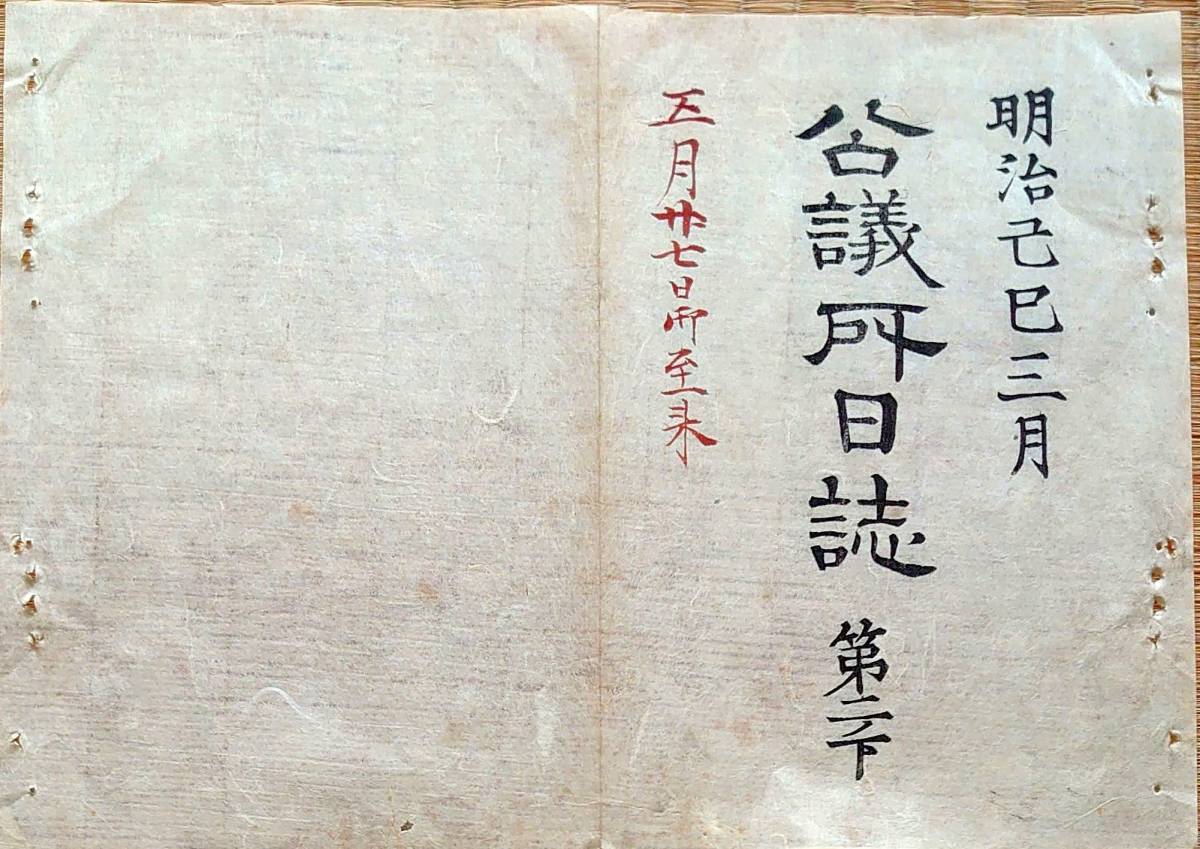 明治己巳三月
公議所日誌 第二ノ下
五月廿七日至来